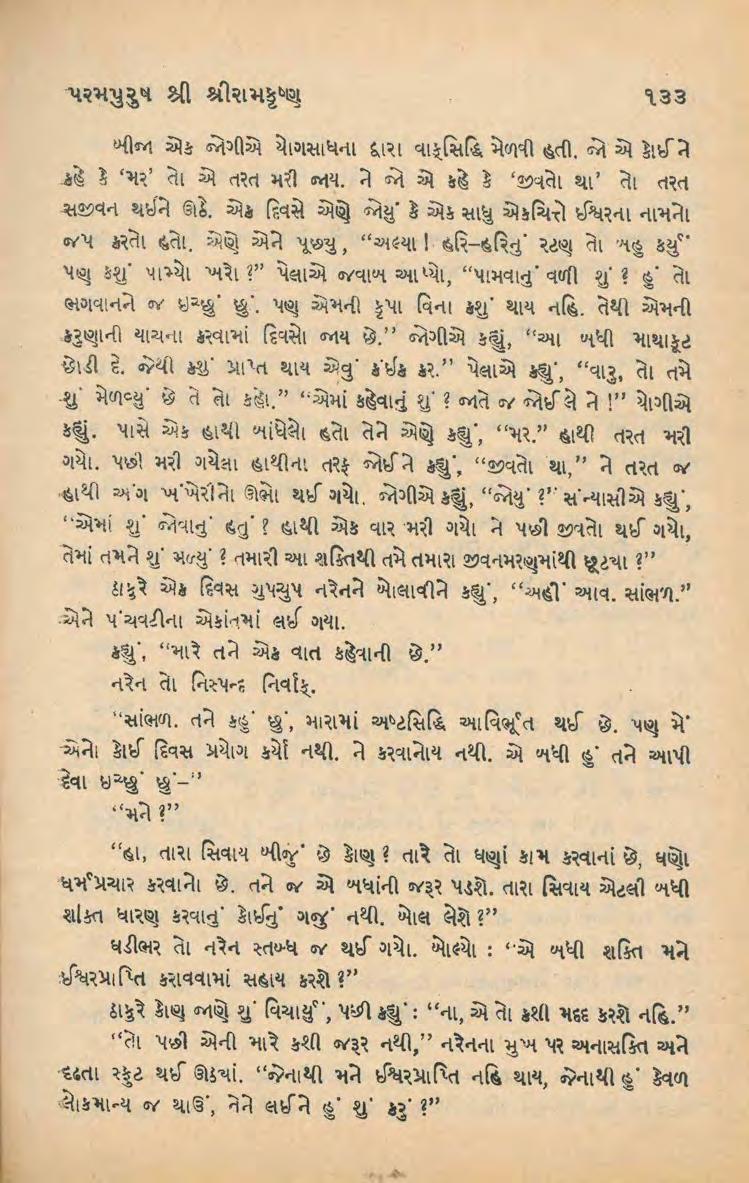 પરમપુરુષ શ્રી શ્રીરામકૃષ્ણ ૧૩૩
બીજા એક જોગીએ યોગસાધના દ્વારા વાક્‌સિદ્ધિ મેળવી હતી. જો એ કોઈ ને
કહે કે ‘મર’ તો એ તરત મરી જાય. ને જો એ કહે કે ‘જીવતો થા’ તો તરત
સજીવન થઈને ઊઠે. એક દિવસે એણે જોયું કે એક સાધુ એકચિત્તે ઈશ્વરના નામનો
જપ કરતો હતો. એણે એને પૂછ્યુ, “અલ્યા ! હરિ-હરિનું રટણ તો બહુ કર્યું
પણ કશું પામ્યો ખરો ?” પેલાએ જવાબ આપ્યો, “પામવાનું વળી શું ? હું તો
ભગવાનને જ ઇચ્છું છું. પણ એમની કૃપા વિના કશું થાય નહિ. તેથી એમની
કરુણાની યાચના કરવામાં દિવસો જાય છે.” જોગીએ કહ્યું, “આ બધી માથાકૂટ
છોડી દે. જેથી કશું પ્રાપ્ત થાય એવું કંઈક કર.” પેલાએ કહ્યું, “વારુ, તો તમે
શું મેળવ્યું છે તે તો કહો.” “એમાં કહેવાનું શું ? જાતે જ જોઈ લે ને !” યોગીએ
કહ્યું. પાસે એક હાથી બાંધેલો હતો તેને એણે કહ્યું, “મર.” હાથી તરત મરી
ગયો. પછી મરી ગયેલા હાથીના તરફ જોઈને કહ્યું, “જીવતો થા,” ને તરત જ
હાથી અંગ ખંખેરીને ઊભો થઈ ગયો. જોગીએ કહ્યું, “જોયું ?” સંન્યાસીએ કહ્યું,
“એમાં શું જોવાનું હતું ? હાથી એક વાર મરી ગયો ને પછી જીવતો થઈ ગયો,
તેમાં તમને શું મળ્યું ? તમારી આ શક્તિથી તમે તમારા જીવનમરણમાંથી છૂટ્યા ?”
ઠાકુરે એક દિવસ ગુપચુપ નરેનને બોલાવીને કહ્યું, “અહીં આવ. સાંભળ.”
એને પંચવટીના એકાંતમાં લઈ ગયા.
કહ્યું, “મારે તને એક વાત કહેવાની છે.”
નરેન તો નિસ્પન્દ નિર્વાક્.
“સાંભળ. તને કહું છું, મારામાં અષ્ટસિદ્ધિ આવિર્ભૂત થઈ છે. પણ મેં
એનો કોઈ દિવસ પ્રયોગ કર્યો નથી. ને કરવાનોય નથી. એ બધી હું તને આપી
દેવા ઇચ્છું છું–”
“મને ?”
“હા, તારા સિવાય બીજું છે કોણ ? તારે તો ઘણાં કામ કરવાનાં છે, ઘણો
ધર્મપ્રચાર કરવાનો છે. તને જ એ બધાંની જરૂર પડશે. તારા સિવાય એટલી બધી
શક્તિ ધારણ કરવાનું કોઈનું ગજું નથી. બોલ લેશે ?”
ઘડીભર તો નરેન સ્તબ્ધ જ થઈ ગયો. બોલ્યો : “એ બધી શક્તિ મને
ઈશ્વરપ્રાપ્તિ કરાવવામાં સહાય કરશે ?”
ઠાકુરે કોણ જાણે શું વિચાર્યું, પછી કહ્યું : “ના, એ તો કશી મદદ કરશે નહિ.”
“તો પછી એની મારે કશી જરૂર નથી,” નરેનના મુખ પર અનાસક્તિ અને
દૃઢતા સ્ફુટ થઈ ઊઠ્યાં. “જેનાથી મને ઈશ્વરપ્રાપ્તિ નહિ થાય, જેનાથી હું કેવળ
લોકમાન્ય જ થાઉં, તેને લઈને હું શું કરું ?”